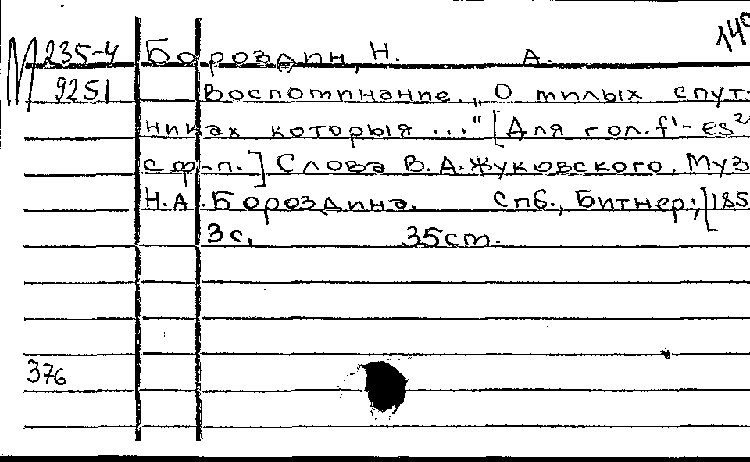 140
М 235-4 Бороздин, Н. А.
9251 Воспоминание. „О милых спут-
никах которыя ..." [Для гол. f¹-es²
с ф-п.] Слова В.А.Жуковского. Муз
Н.А.Бороздина. Спб., Битнер, [185
3с. 35cm.
376